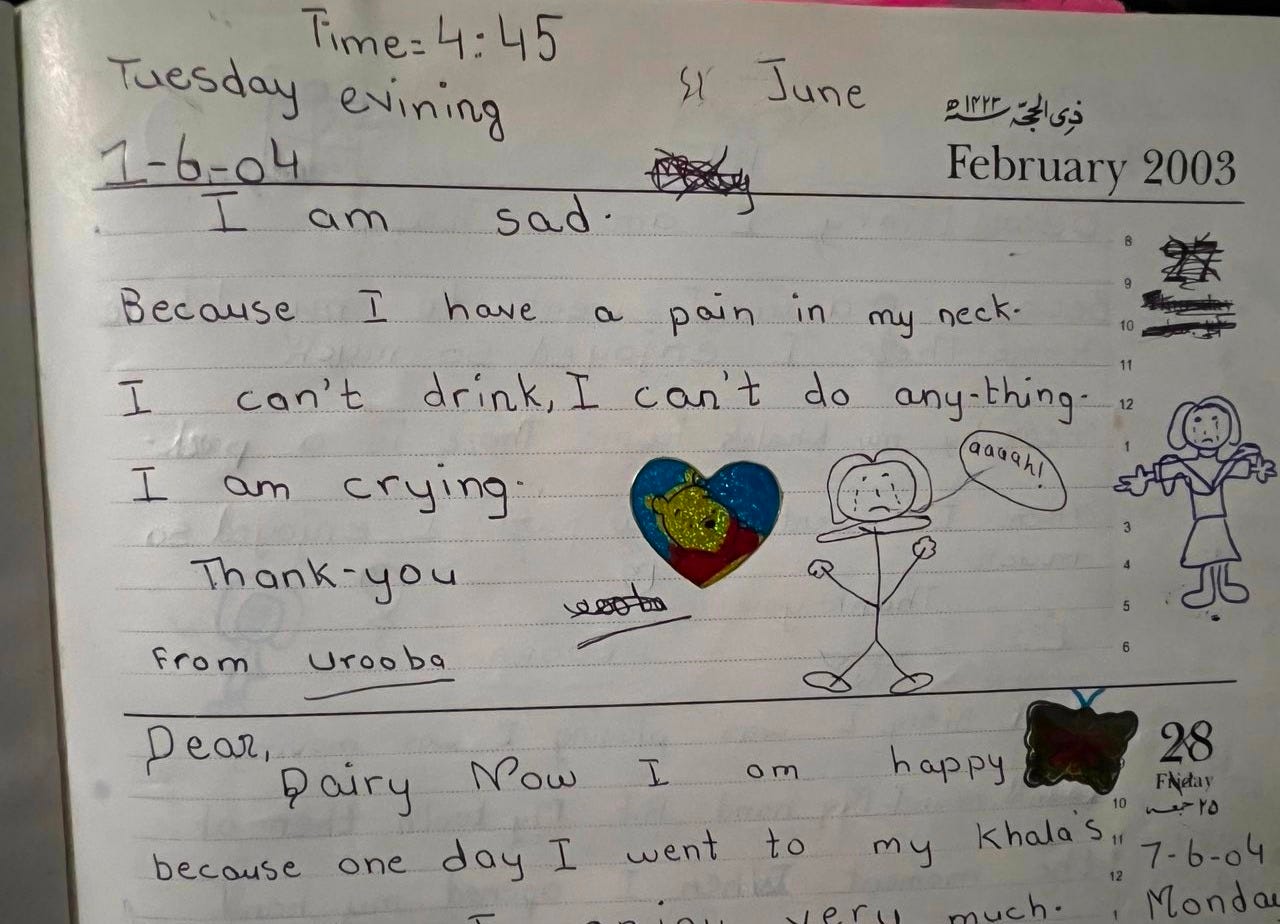 Time=4:45
Tuesday evining
June
1-6-04
ذی الحجۃ ۱۴۲۳ھ
February 2003
I am sad.
8
27
9
Because I have a pain in my neck.
10
11
I can't drink, I can't do any-thing.
12
1
aaaah!
I am crying.
3
Thank-you
4
5
From Urooba
6
Dear,
28
Dairy Now I am happy
Friday
10
۲۵ جمعہ
because one day I went to my Khala's
11
7-6-04
12
Monda
I enjoy very much.